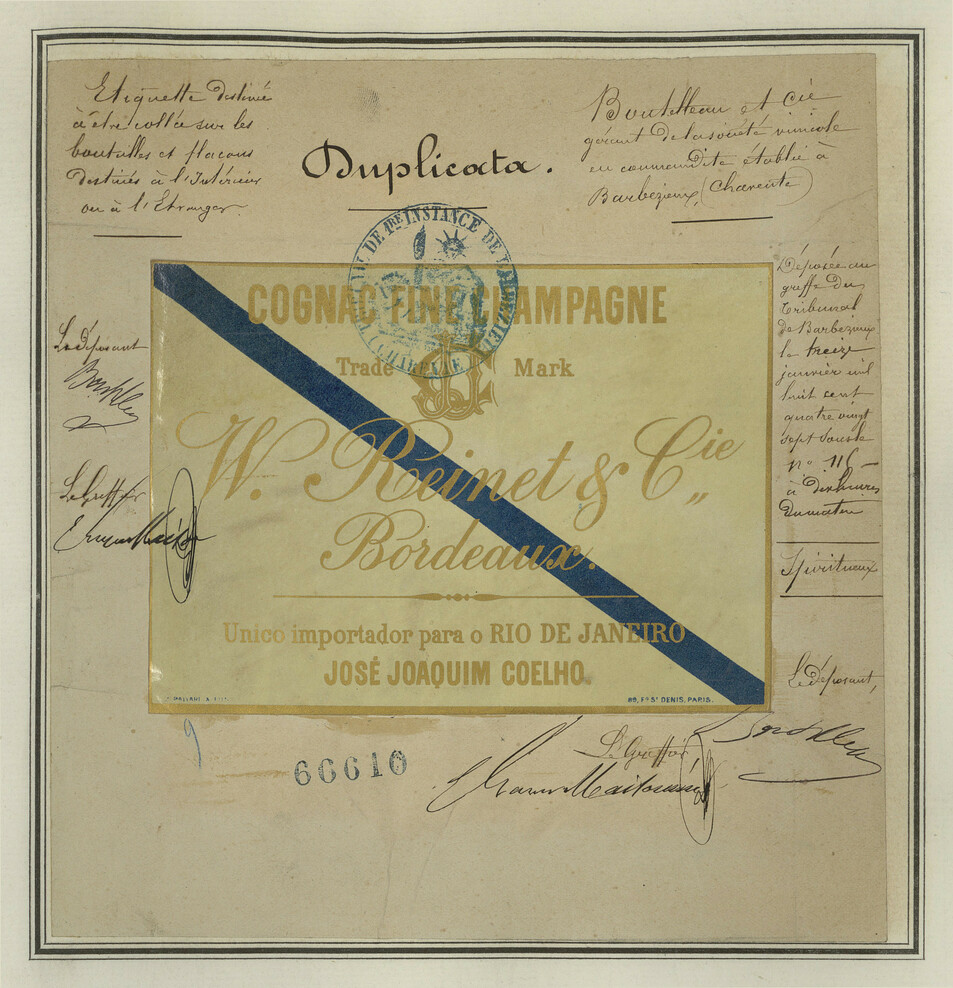 Etiquette destinée
à être collée sur les
bouteilles et flacons
destinés à l'Intérieur
ou à l'Etranger.
Duplicata.
Boutelleau et Cie
gérant de la société vinicole
en commandite établie à
Barbezieux, (Charente)
TRIBUNAL DE 1RE INSTANCE DE BARBEZIEUX
(CHARENTE)
COGNAC FINE CHAMPAGNE
Trade Mark
W. Reinet & Cie
Bordeaux.
Unico importador para o RIO DE JANEIRO
JOSÉ JOAQUIM COELHO
89, Fg St DENIS, PARIS.
Le déposant
Le Greffier
Déposée au
greffe du
Tribunal
de Barbezieux
le treize
janvier mil
huit cent
quatre vingt
sept sous le
no 116
à dix heures
du matin
Spiritueux
Le déposant,
Le Greffier
9
66610